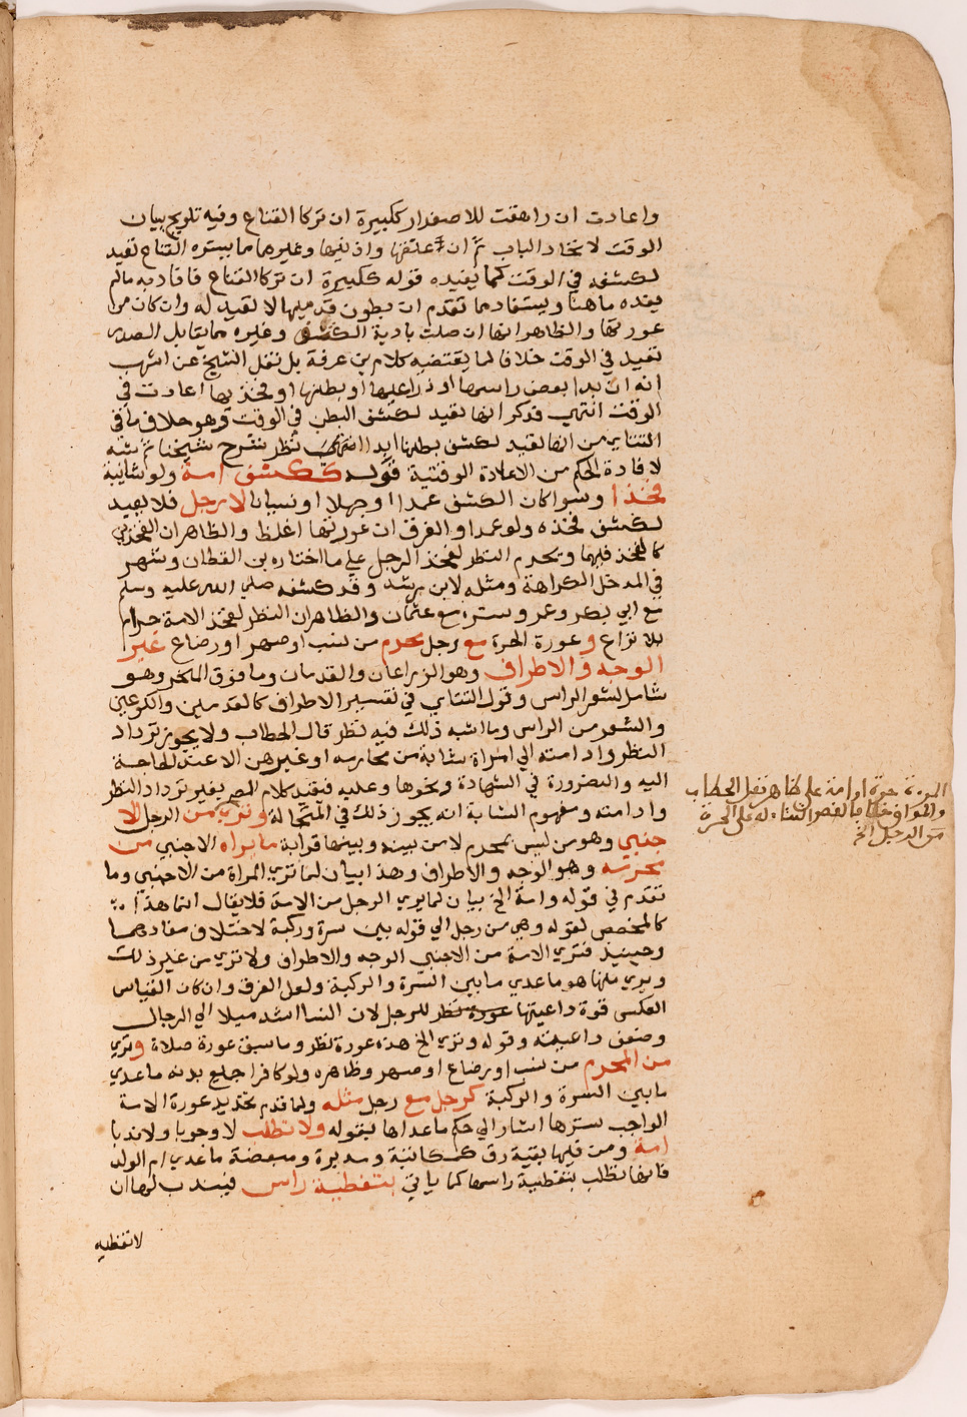 واعادت ان راهقت للاصفرار ككبيرة ان تركا القناع وفيه تلويح بيان
الوقت لاتحاد الباب ثم ان علقها واذنيها وغيرهما مما يستره القناع تعيد
لكشفه في الوقت كما يفيده قوله ككبيرة ان تركا القناع فافاد به مالم
يفده ماهنا ويستفاد مما تقدم ان بطون قدميها لا تعيد له وان كان من
عورتها والظاهر انها ان صلت بادية الكشف وغيره مما يقابل الصدر
تعيد في الوقت خلافا لما يقتضيه كلام بن عرفة بل نقل الشيخ عن اشهب
انه ان بدا بعض راسها او ذراعيها او بطنها او فخذيها اعادت في
الوقت انتهي فذكر انها تعيد لكشف البطن في الوقت وهو خلاف ما في
التتاي من انها تعيد لكشف بطنها ابدا انتهي نظر شرح شيخنا ثم شبه
لافادة الحكم من الاعادة الوقتية قوله ككشف امة ولو شايبة
فخذا وسواكان الكشف عمدا او جهلا او نسيانا لا رجل فلا يعيد
لكشف فخذه ولو عمدا والفرق ان عورتها اغلظ والظاهر ان الفخذين
كالفخذ فيها ويحرم النظر لفخذ الرجل على ما اختاره بن القطان وشهر
في المدخل الكراهة ومثله لابن رشد وقد كشفه صلي الله عليه وسلم
مع ابي بكر وعمر وستره مع عثمان والظاهر ان النظر لفخذ الامة حرام
بلا نزاع وعورة الحرة مع رجل محرم من نسب او صهر او رضاع غير
الوجه والاطراف وهو الزراعان والقدمان وما فوق المنحر وهو
شامل لشعر الراس وقول التتاي في تفسير الاطراف كالقدمين والكوعين
والشعر من الراس وما اشبه ذلك فيه نظر قال الحطاب ولا يجوز ترداد
النظر وادامته الي امراة شابة من محارمه او غيرهن الا عند الحاجة
اليه والضرورة في الشهادة ونحوها وعليه فيقيد كلام المص بغير ترداد النظر
وادامته ومفهوم الشابة انه يجوز ذلك في المتجالة وتري من الرجل الا
جنبي وهو من ليس بمحرم لا من بينه وبينها قرابة ما يراه الاجنبي من
محرمه وهو الوجه والاطراف وهذا بيان لما تري المراة من الاجنبي وما
تقدم في قوله وامة الخ بيان لما يري الرجل من الامة فلا يقال انما هذا
كالمخصص لقوله وهي من رجل الي قوله بين سرة وركبة لاختلاف مفادهما
وحينيذ فتري الامة من الاجنبي الوجه والاطراف ولا تري من غير ذلك
ويري منها هو ما عدي ما بين السرة والركبة ولعل الفرق وان كان القياس
العكس قوة داعيتها عورة نظر للرجل لان النسا اشد ميلا الي الرجال
وضعف داعيته وقوله وتري الخ هذه عورة نظر وما سبق عورة صلاة وتري
من المحرم من نسب او رضاع او صهر وظاهره ولو كافرا جميع بدنه ما عدي
ما بين السرة والركبة كرجل مع رجل مثله ولما قدم تحديد عورة الامة
الواجب سترها اشار الي حكم ما عداها بقوله ولا تطلب لا وجوبا ولا ندبا
امة ومن فيها بقية رق كمكاتبة ومدبرة ومبعضة ما عدي ام الولد
فانها تطلب بتغطية راسها كما ياتي بتغطية راس فيندب لها ان
لا تغطيه
حرة او امة على ظاهر نقل الحطاب
من الرجل الخ